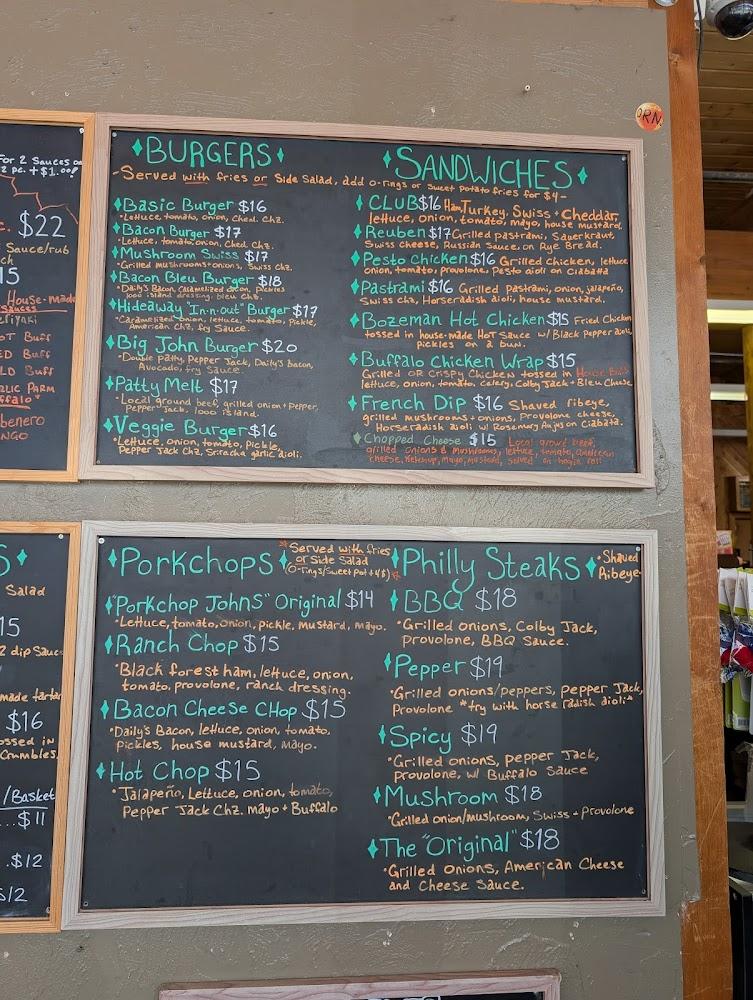 For 2 Sauces on
2 pc. + $1.00!
$22
Sauce/rub
15
House-made
Sauces
OT Buff
ED Buff
LD Buff
RLIC PARM
ffalo"
abenero
ANGO
ORN.
BURGERS
-Served with fries or Side Salad, add o-rings or Sweet potato fries for $4-
Basic Burger $16
Lettuce, tomato, onion, Ched. Chz.
Bacon Burger $17
Lettuce, tomato, onion, Ched. Chz.
Mushroom Swiss $17
Grilled mushrooms+onions, Swiss Chz.
Bacon Bleu Burger $18
Daily's Bacon, Caramelized onion, Pickles
1000 island dressing, bleu Chz.
Hideaway "In-n-out" Burger $17
Caramelized onion, lettuce, tomato, pickle,
American Chz, fry Sauce.
Big John Burger $20
Double patty, Pepper Jack, Daily's Bacon,
Avocado, fry Sauce.
Patty Melt $17
Local ground beef, grilled onion+Pepper,
Pepper Jack, 1000 island.
Veggie Burger $16
Lettuce, onion, tomato, Pickle,
Pepper Jack Chz, Sriracha garlic aioli.
SANDWICHES
CLUB $16 Ham, Turkey, Swiss + Cheddar,
lettuce, onion, tomato, mayo, house mustard,
Reuben $17 Grilled pastrami, Sauerkraut,
Swiss cheese, Russian Sauce, on Rye Bread.
Pesto Chicken $16 Grilled Chicken, lettuce
onion, tomato, provolone, Pesto aioli on Ciabatta
Pastrami $16 Grilled Pastrami, onion, jalapeño,
Swiss chz, Horseradish aioli, house mustard.
Bozeman Hot Chicken $15 Fried Chicken
tossed in house-made Hot Sauce w/ Black pepper aioli
pickles on a bun.
Buffalo Chicken Wrap $15
Grilled OR Crispy Chicken tossed in House Buff
lettuce, onion, tomato, celery, Colby Jack + Bleu Cheese
French Dip $16 Shaved ribeye,
grilled mushrooms + onions, Provolone cheese,
Horseradish aioli w/ Rosemary Aujus on Ciabata.
Chopped Cheese $15 Local ground beef,
grilled onions & mushrooms, lettuce, tomato, american
cheese, Ketchup, Mayo, mustard, served on hogie roll
S
Salad
15
2 dip Sauce
made tartar
$16
ossed in
Crumbles.
/Basket
...$11
.$12
$12
Porkchops
Served with fries
or Side Salad
(O-rings/Sweet pot +4$)
"Porkchop Johns" Original $14
Lettuce, tomato, onion, pickle, mustard, mayo.
Ranch Chop $15
Black forest ham, lettuce, onion,
tomato, provolone, ranch dressing.
Bacon Cheese Chop $15
Daily's Bacon, lettuce, onion, tomato,
pickles, house mustard, mayo.
Hot Chop $15
Jalapeño, Lettuce, onion, tomato,
Pepper Jack Chz. mayo + Buffalo
Philly Steaks
Shaved
Ribeye
BBQ $18
Grilled onions, Colby Jack,
provolone, BBQ Sauce.
Pepper $19
Grilled onions/peppers, pepper Jack,
Provolone *try with horse radish aioli*
Spicy $19
Grilled onions, pepper Jack,
provolone, w/ Buffalo Sauce
Mushroom $18
Grilled onion/mushroom, Swiss + Provolone
The "Original" $18
Grilled onions, American Cheese
and Cheese Sauce.